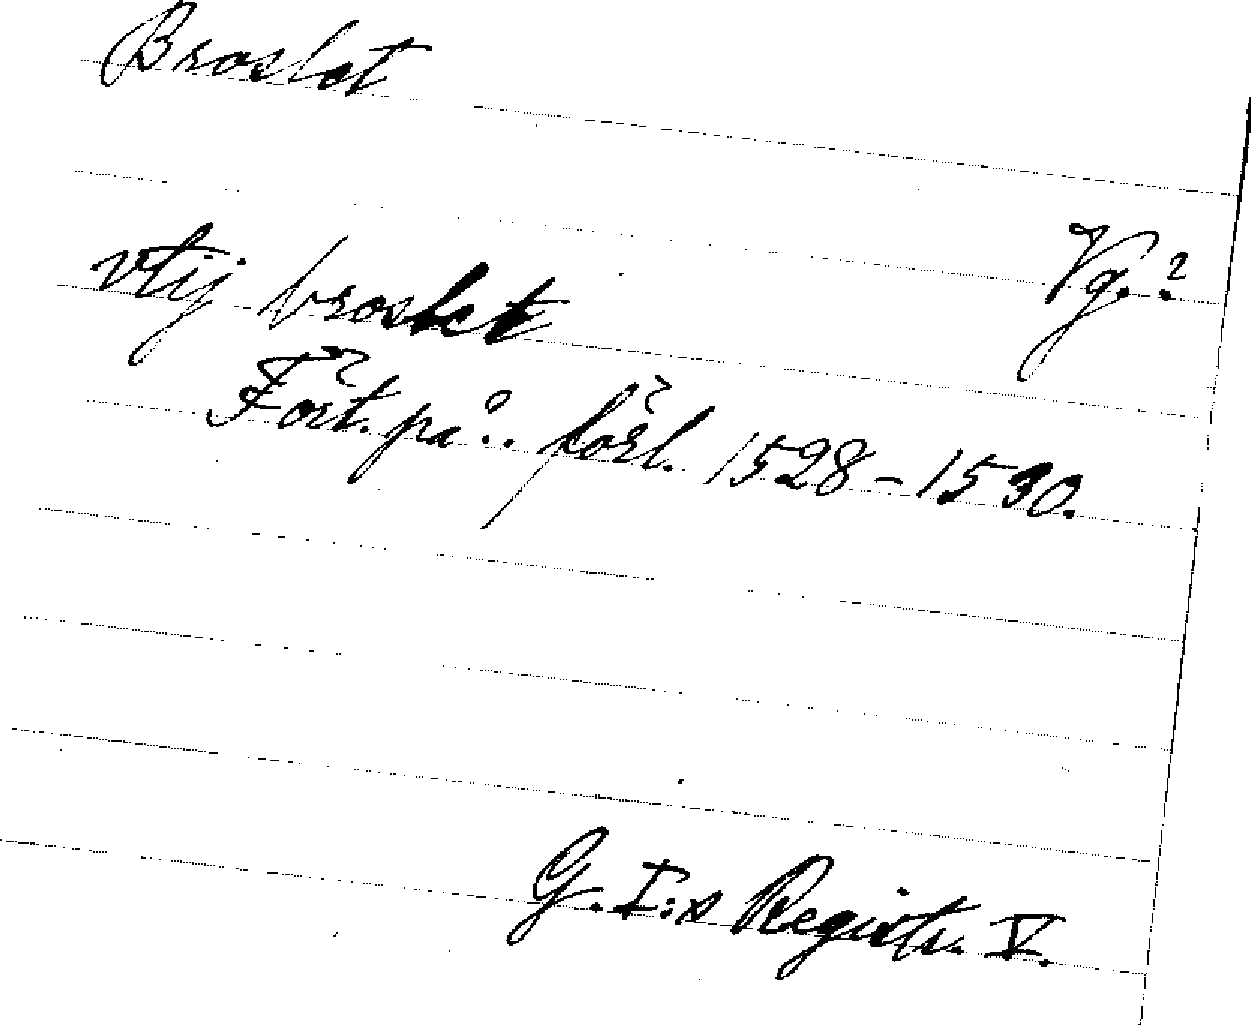 Broslot
Vg.?
vtij broslet
Fört. på.. förl. 1528-1530.
G. I:s Registr. V.